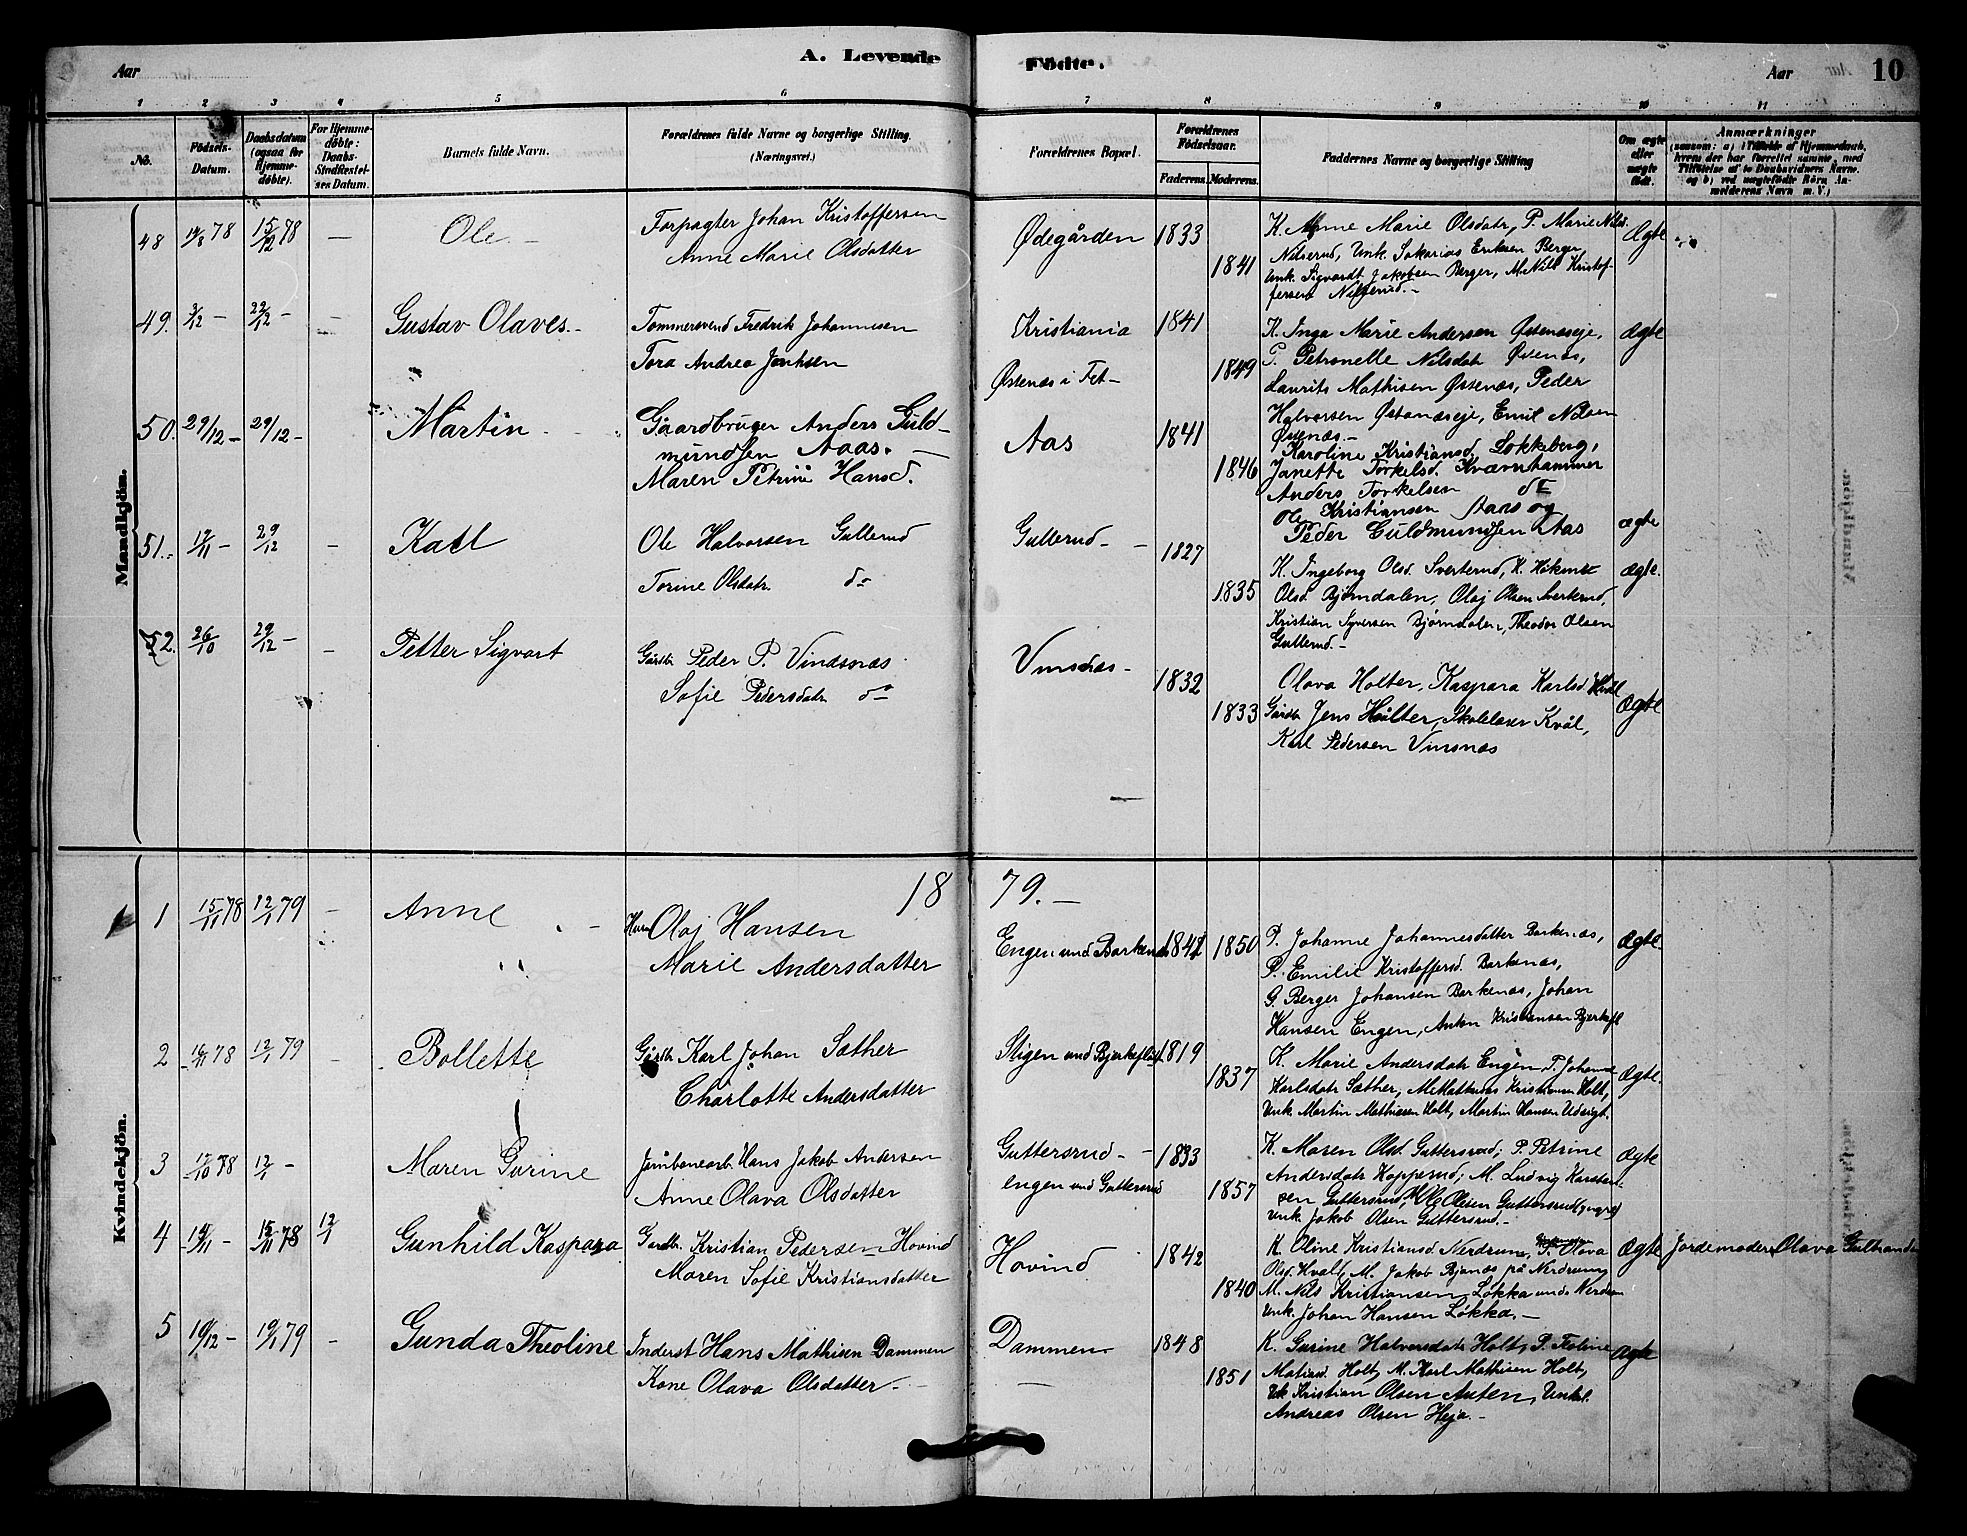 Aar
A. Levende
Fødte.
Aar
10
1 2 3 4 5 6 7 8 9 10 11
No.
Fødsels-Datum.
Daabsdatum (ogsaa for Hjemmedøbte).
For Hjemmedøbte: Daabs-Stadfæstelses Datum.
Barnets fulde Navn.
Forældrenes fulde Navne og borgerlige Stilling. (Næringsvei.)
Forældrenes Bopæl.
Forældrenes Fødselsaar.
Faderens. Moderens.
Faddernes Navne og borgerlige Stilling
Om ægte eller uægte født.
Anmærkninger
(saasom: a) i Tilfælde af Hjemmedaab, hvem der har forrettet samme, med Tilføielse af to Daabsvidners Navne. og b) ved uægtefødte Børn Anmelderens Navn m. V.)
Mandkjøn.
48 78 15/12 78 — Ole. —
Forpagter Johan Kristoffersen
Anne Marie Olsdatter
Ødegården 1833
1841
K. Anne Marie Olsdatr, P. Marie Nilsd.
Nilserud, Unk. Sakarias Eriksen Berger,
Unk. Sigvardt Jakobsen Berger, M. Nils Kristof-
fersen Nilserud. —
Ægte
49. 3/12 — 22/12 — — Gustav Olaves. —
Tømmersvend Fredrik Johannesen
Tora Andrea
Kristiania 1841
Østenæs i Fet — 1849
K. Inga Marie Andersen Østenæseje,
P. Petronelle Nilsdatr Østenæs,
Laurits Mathisen Østenæs, Peder
Halvorsen Østenæseje, Emil Nilsen
Østenæs. —
ægte
50. 29/12 — 29/12 — Martin
Gaardbruger Anders Guld-
mundsen Aaas. —
Maren Petrine Hansd.
Aas 1841
1846
Karoline Kristiansd. Løkkeberg,
Janette Torkelsd. Kværnhammer
Anders Torkelsen do
Ole Kristiansen Aas og
Peder Guldmundsen Aas
ægte
51. 29/12 — Karl
Ole Halvorsen Gullerud
Torine Olsdatr. do
Gullerud — 1827
1835
K. Ingeborg Olsd. Sverterud, K.
Olsd. Bjørndalen, Olaj Olsen Sverterud,
Kristian Syversen Bjørndalen, Theodor Olsen
Gullerud. —
ægte.
52. 26/10 29/12 — — Petter Sigvart
Gårdbr Peder P. Vindsnæs
Sofie Pedersdatr do
Vinsnæs — 1832
1833
Olava Holter, Kaspara Karlsd
Gårdbr Jens Holter, Skolelærer Kvål,
Karl Pedersen Vinsnæs
Ægte
Kvindekjøn.
1879. —
1 15/11 78 12/1 79 — Anne
Olaj Hansen
Marie Andersdatter
Engen und Barkenæs 1850
P. Johanne Johannesdatter Barkenæs,
P. Emilie Kristoffersd. Barkenæs,
G. Berger Johansen Barkenæs, Johan
Hansen Engen, Anton Kristiansen
Ægte
2 78 12/1 79 Bollette
Gårdbr Karl Johan Sæther
Charlotte Andersdatter
Stigen und Bjerkefløit 1819
1837
K. Marie Andersdatr Engen, P. Johanne
Karlsdatr Sæther, M. Kristiansen Holt,
Unk. Martin Mathisen Holt, Martin Hansen Udsigt.
Ægte.
3 78 12/1 — Maren Gurine
Jernbanearb. Hans Jakob Andersen
Anne Olava Olsdatter
Guttersrud — 1833
engen und Guttersrud 1857
K. Maren Olsd Guttersrud; P. Petrine
Andersdatr Kopperud; M. Ludvig Karsten-
sen Guttersrud, Ole Olsen Guttersrud (yngre)
Unk. Jakob Olsen Guttersrud. —
Ægte
4 14/11 — 15/11 78 12/1 Gunhild Kaspara
Gårdbr. Kristian Pedersen Hovind
Maren Sofie Kristiansdatter
Hovind 1842
1840
K. Oline Kristiansd Nerdrum, P. Olava
Olsd. Hval, M. Jakob på Nerdrum,
M. Nils Kristiansen Løkka und. Nerdrum
Unk. Johan Hansen Løkka. —
Ægte Jordemoder Olava
5 19/12 — 19/1 79 — Gunda Theoline
Inderst Hans Mathisen Dammen
Kone Olava Olsdatter. —
Dammen 1848
1851
K. Gurine Halvorsdatr Holt, P.
Holt, M. Karl Mathisen Holt,
Unk Kristian Olsen Auten, Unkl.
Andreas Olsen Heja. —
Ægte